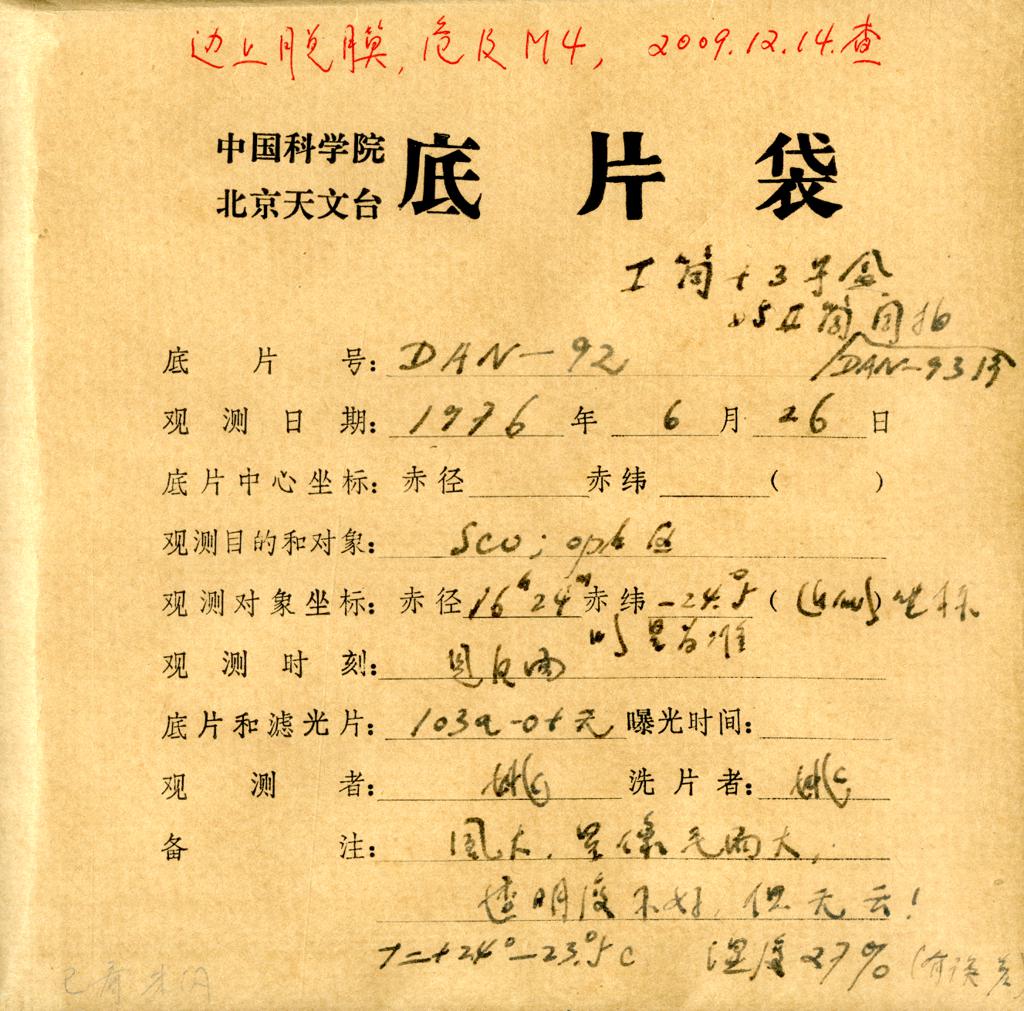 边上脱膜,危及M4, 2009.12.14.查
中国科学院
北京天文台
底片袋
I筒+3号盒
II筒同拍
DAN-93号
底片号: DAN-92
观测日期: 1976年 6月 26日
底片中心坐标: 赤径 赤纬 ( )
观测目的和对象: Sco; oph 区
观测对象坐标: 赤径 16h24m 赤纬 -24.°5 ( ) 坐标
以星为准
观测时刻: 见反面
底片和滤光片: 103a-0+无 曝光时间:
观测者: 洗片者:
备注: 风大, 星像 大,
透明度不好, 但无云!
T=+24°-23.°5C 湿度27% (有误差)
已看 闪